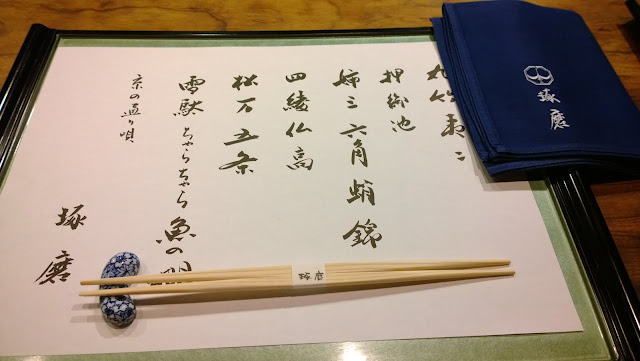 丸竹夷二
押御池
姉三六角蛸錦
四綾仏高
松万五条
雪駄ちゃらちゃら魚の棚
京の通り唄
琢磨
琢磨
琢磨